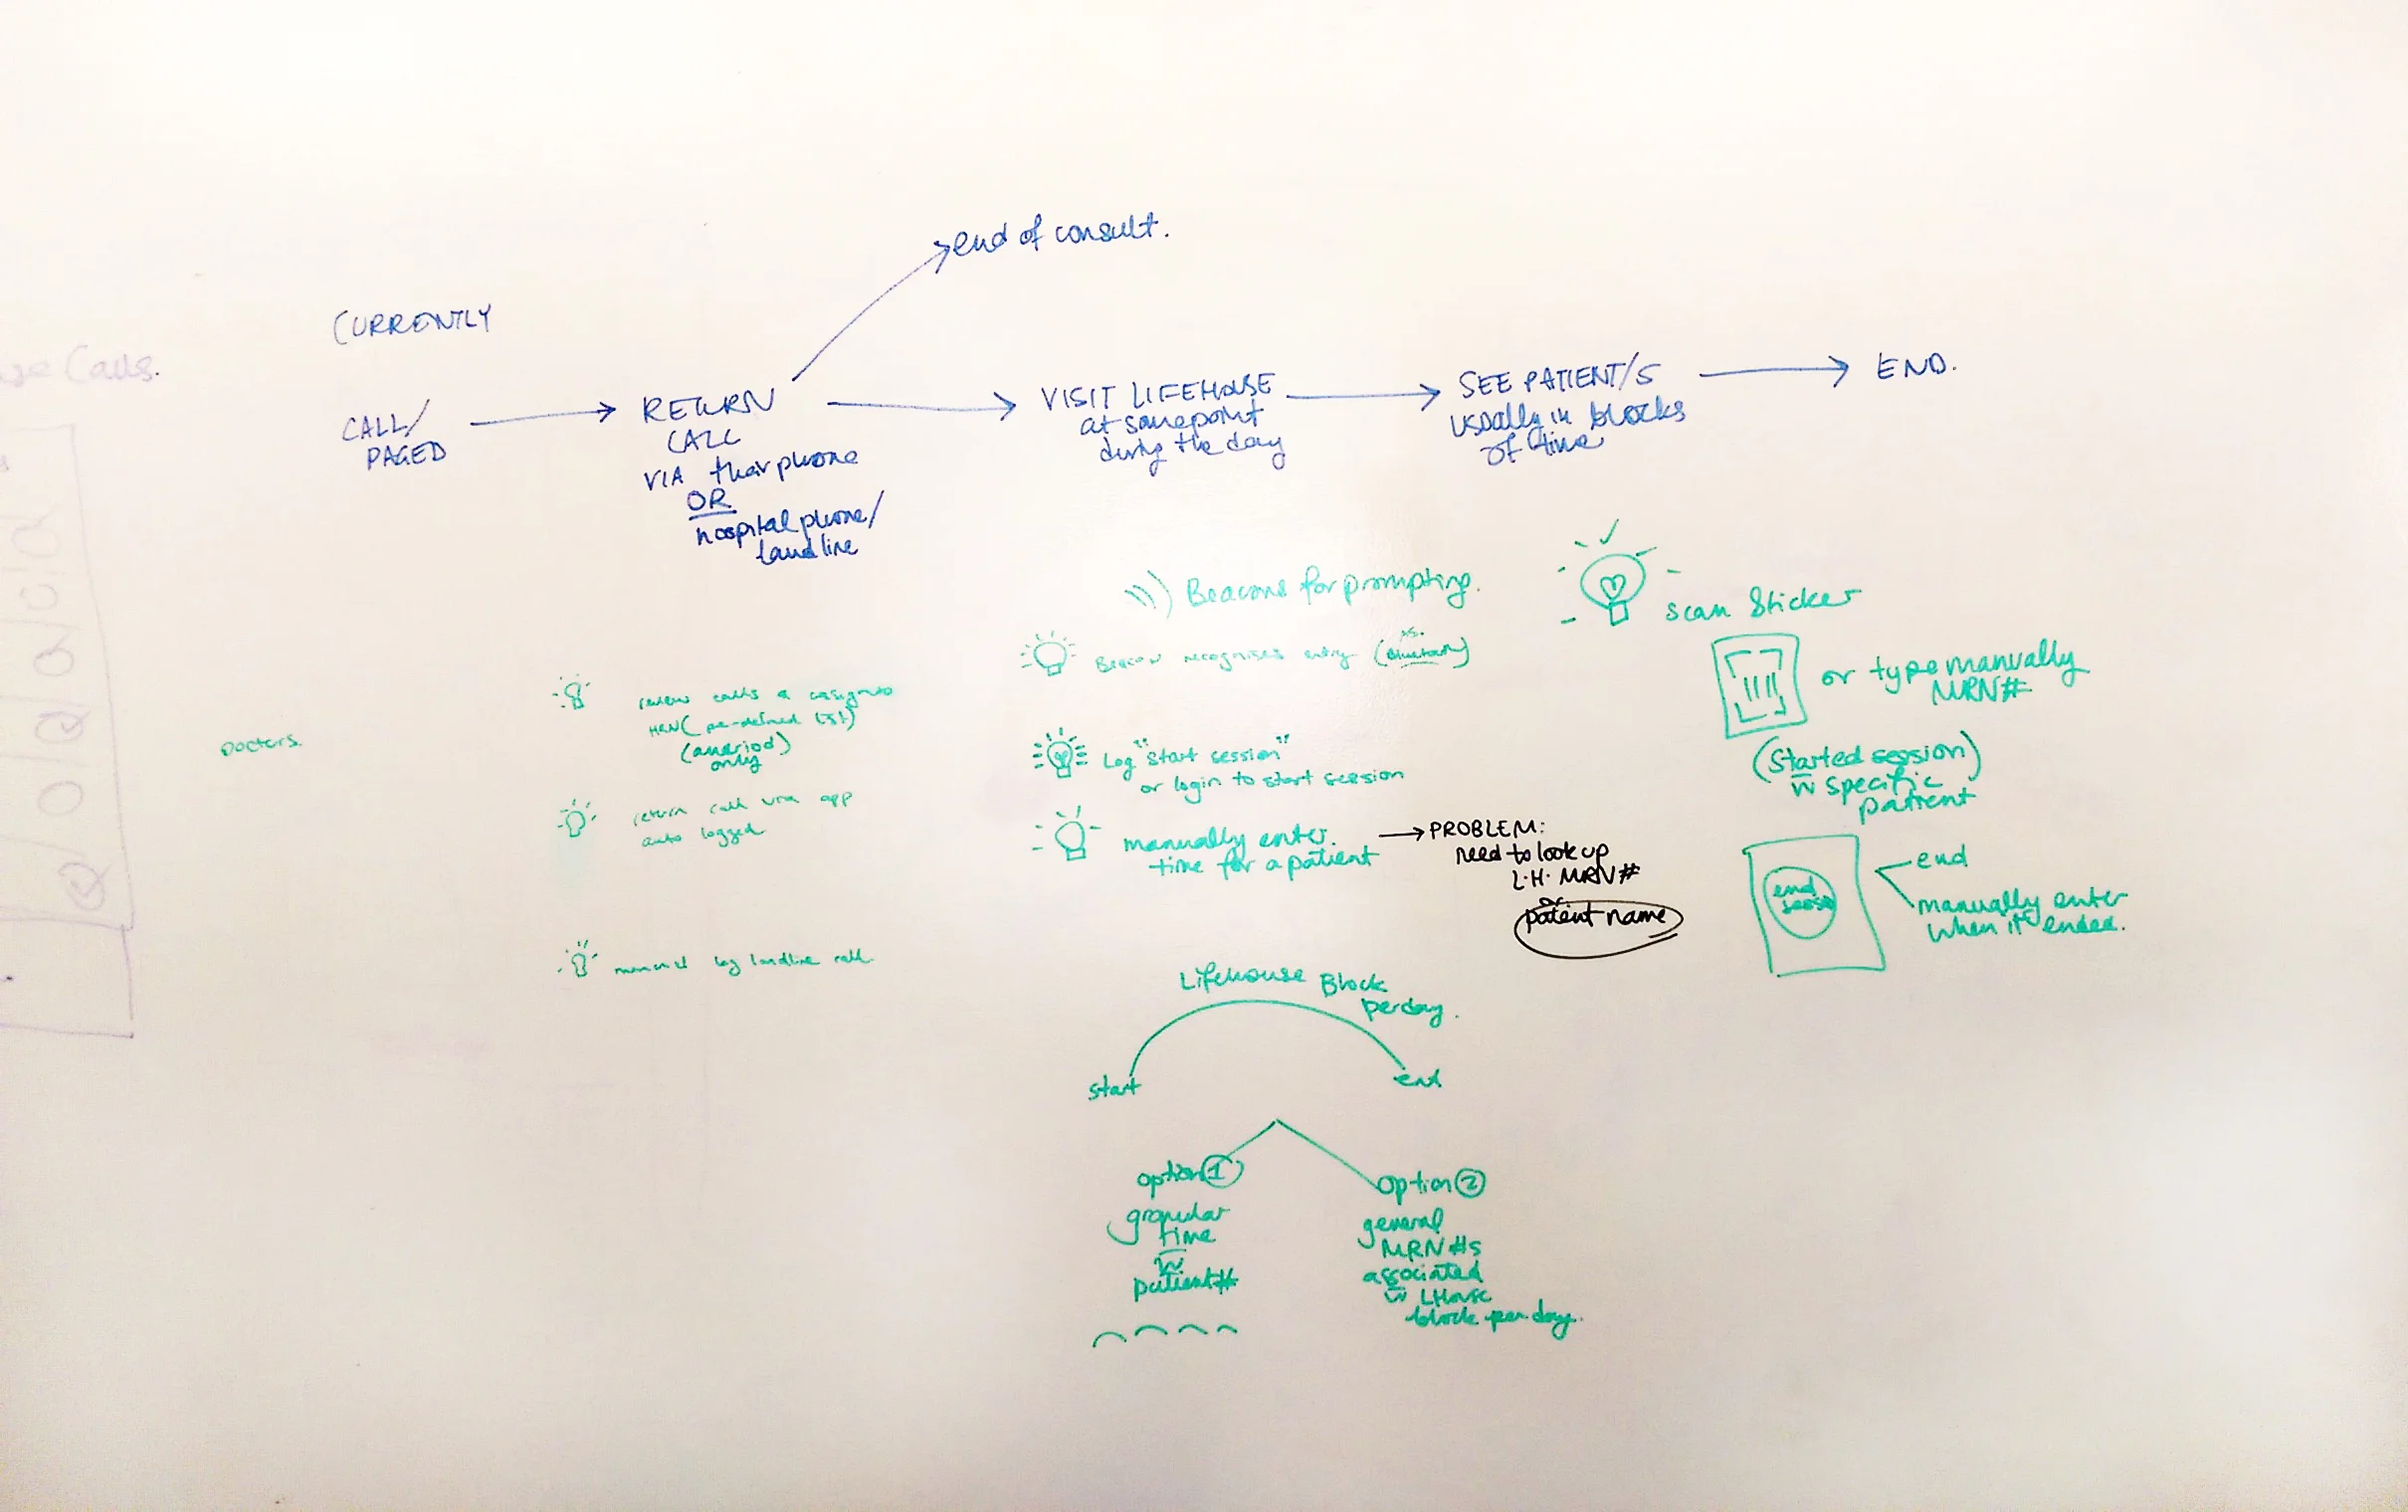 end of consult.
CURRENTLY
Calls.
CALL/
PAGED
RETURN
CALL
VIA their phone
OR
hospital phone/
landline
VISIT LIFEHOUSE
at somepoint
during the day
SEE PATIENT/S
usually in blocks
of time
END.
Doctors
review calls & assign to
MRN (pre-defined list)
(android)
only
return call via app
auto logged
manual log landline call
Beacons for prompting.
Beacon recognises entry
Log "start session"
or login to start session
manually enter
time for a patient
PROBLEM:
need to look up
L.H. MRN#
or
patient name
Lifehouse Block
per day.
start
end
option 1
granular
time
w
patient#
option 2
general
MRN #s
associated
w LHouse
block per day.
scan sticker
or type manually
MRN#
(Started session)
w specific
patient
end
end
manually enter
when it ended.